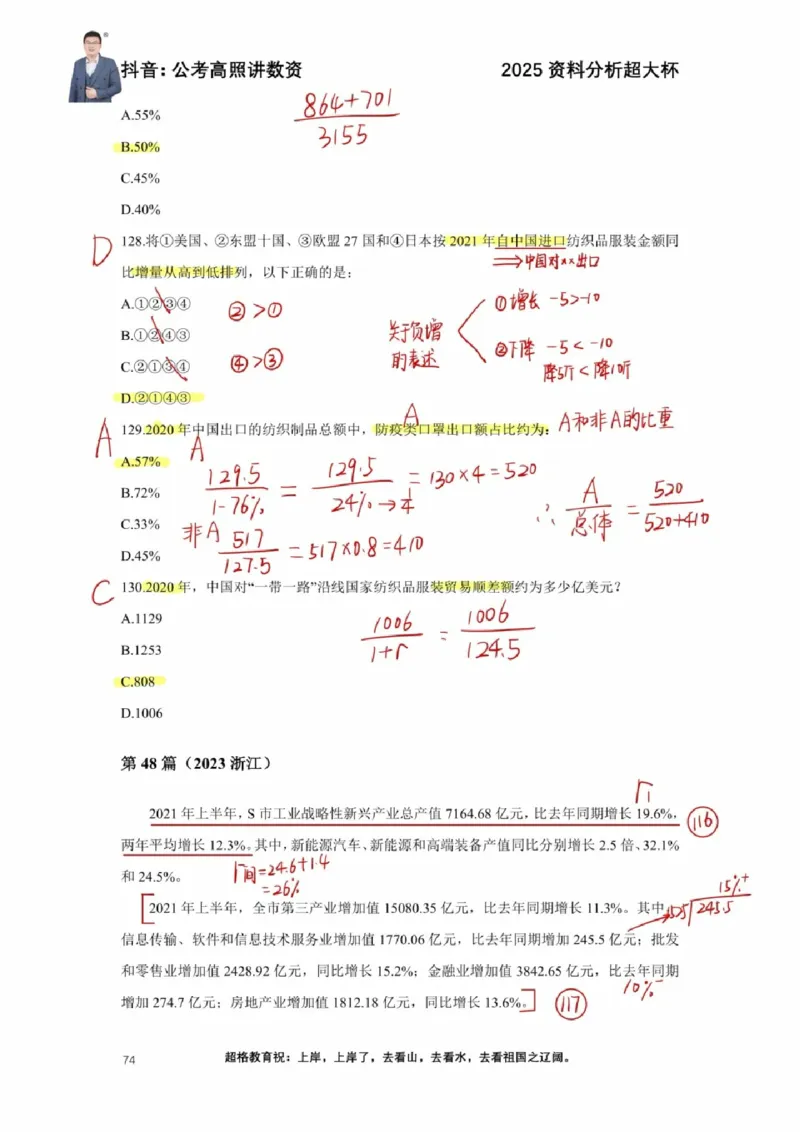 抖音：公考高照讲数资 2025 资料分析超大杯
A.55%
864+701
3155
B.50%
C.45%
D.40%
D
128.将①美国、②东盟十国、③欧盟 27 国和④日本按 2021 年自中国进口纺织品服装金额同
⇒中国对××出口
比增量从高到低排列，以下正确的是：
A.①②③④
②>①
①增长 -5>-10
B.①②④③
关于负增
的表述
②下降 -5<-10
C.②①③④
④>③
降5斤<降10斤
D.②①④③
A
A
129.2020 年中国出口的纺织制品总额中，防疫类口罩出口额占比约为：
A和非A的比重
A.57%
A
129.5/1-76% = 129.5/24%→1/4 = 130×4=520
B.72%
∴ A/总体 = 520/520+410
C.33%
非A 517/127.5 = 517×0.8=410
D.45%
C
130.2020 年，中国对“一带一路”沿线国家纺织品服装贸易顺差额约为多少亿美元？
A.1129
1006/1+r = 1006/124.5
B.1253
C.808
D.1006
第 48 篇（2023 浙江）
r1
2021 年上半年，S 市工业战略性新兴产业总产值 7164.68 亿元，比去年同期增长 19.6%，
116
两年平均增长 12.3%。其中，新能源汽车、新能源和高端装备产值同比分别增长 2.5 倍、32.1%
和 24.5%。
r间=24.6+1.4
=26%
15%+
1525 245.5
2021 年上半年，全市第三产业增加值 15080.35 亿元，比去年同期增长 11.3%。其中，
信息传输、软件和信息技术服务业增加值 1770.06 亿元，比去年同期增加 245.5 亿元；批发
和零售业增加值 2428.92 亿元，同比增长 15.2%；金融业增加值 3842.65 亿元，比去年同期
10%-
增加 274.7 亿元；房地产业增加值 1812.18 亿元，同比增长 13.6%。
117
74 超格教育祝：上岸，上岸了，去看山，去看水，去看祖国之辽阔。